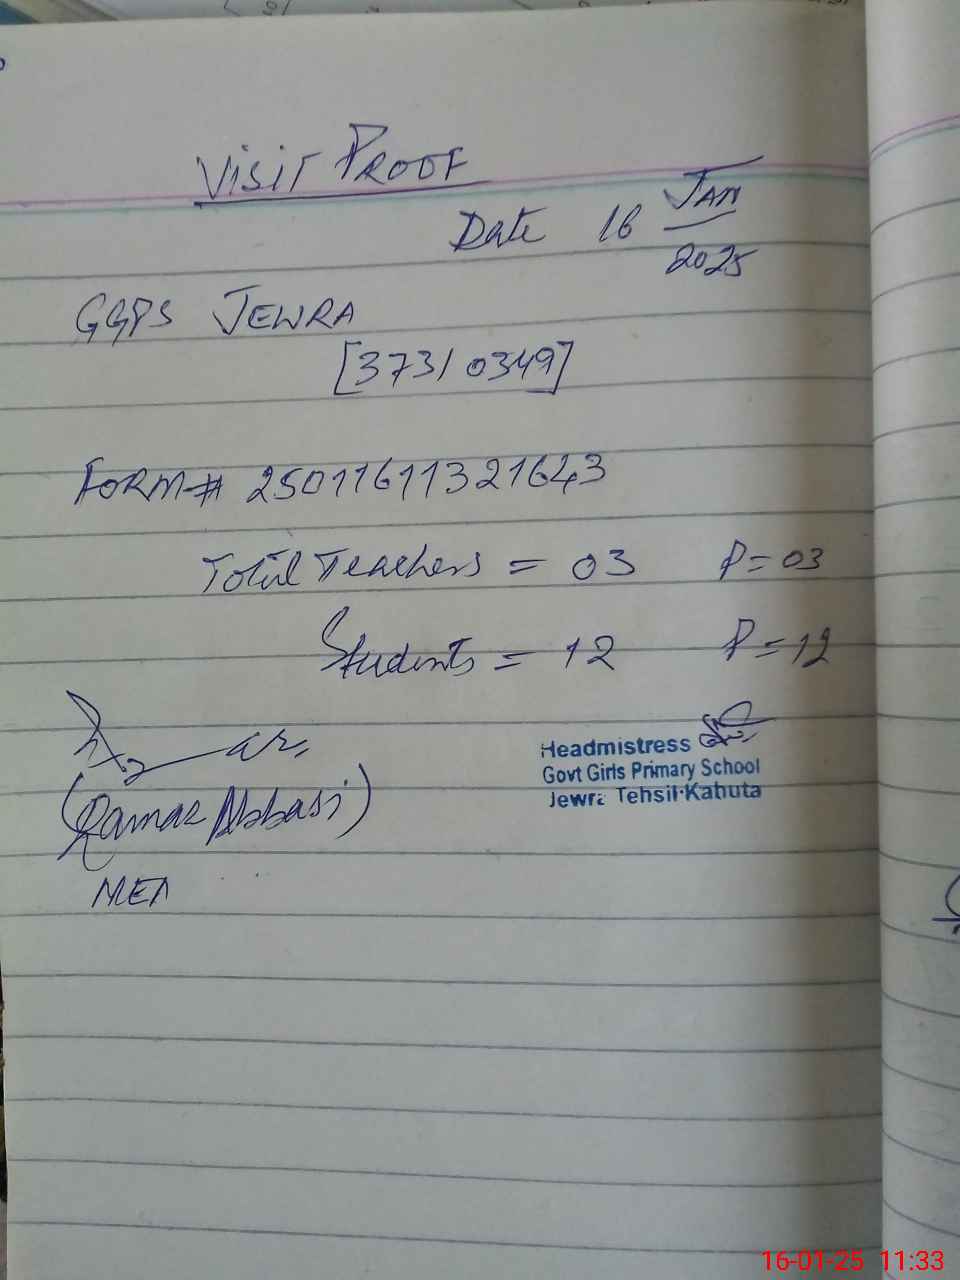 VISIT PROOF
Date 16 JAN 2025
GGPS JEWRA
[37310349]
FORM# 25011611321643
Total Teachers = 03 P=03
Students = 12 P=12
Headmistress
Govt Girls Primary School
Jewra Tehsil Kahuta
(Qamar Abbasi)
MEA
16-01-25 11:33